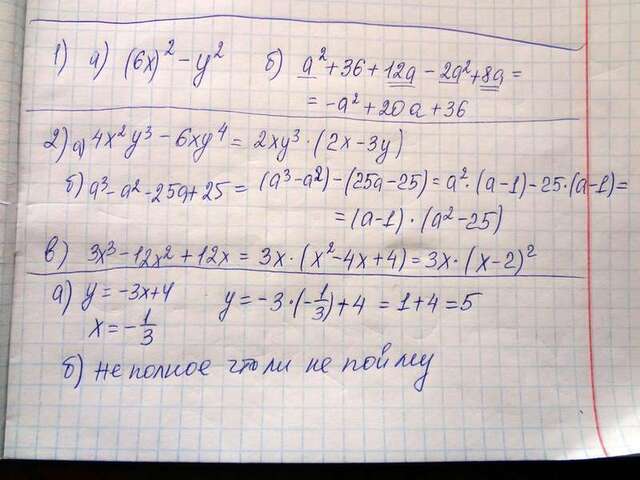 1) а) (6x)² - y² б) a² + 36 + 12a - 2a² + 8a =
= -a² + 20a + 36
2) а) 4x²y³ - 6xy⁴ = 2xy³ · (2x - 3y)
б) a³ - a² - 25a + 25 = (a³ - a²) - (25a - 25) = a² · (a - 1) - 25 · (a - 1) =
= (a - 1) · (a² - 25)
в) 3x³ - 12x² + 12x = 3x · (x² - 4x + 4) = 3x · (x - 2)²
а) y = -3x + 4 y = -3 · (-1/3) + 4 = 1 + 4 = 5
x = -1/3
б) не полное что ли не пойму